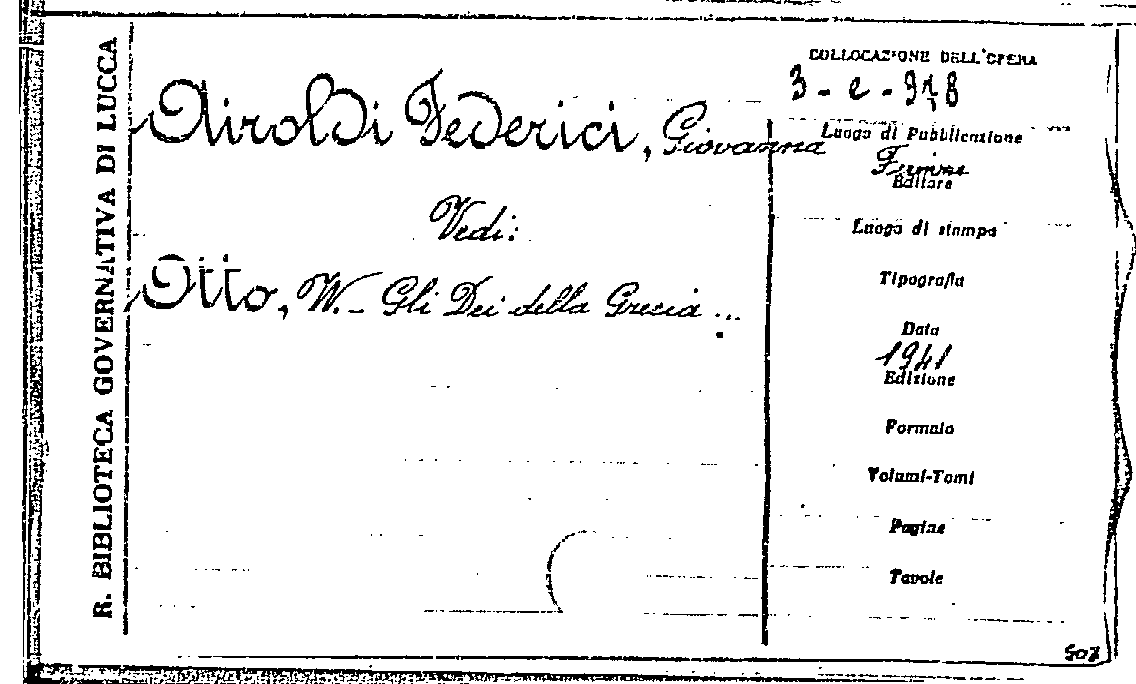 R. BIBLIOTECA GOVERNATIVA DI LUCCA
Airoldi Federici, Giovanna
Vedi:
Otto, W. - Gli Dei della Grecia ...
COLLOCAZIONE DELL'OPERA
3 - e - 918
Luogo di Pubblicazione
Firenze
Editore
Luogo di stampa
Tipografia
Data
1941
Edizione
Formato
Volumi-Tomi
Pagine
Tavole